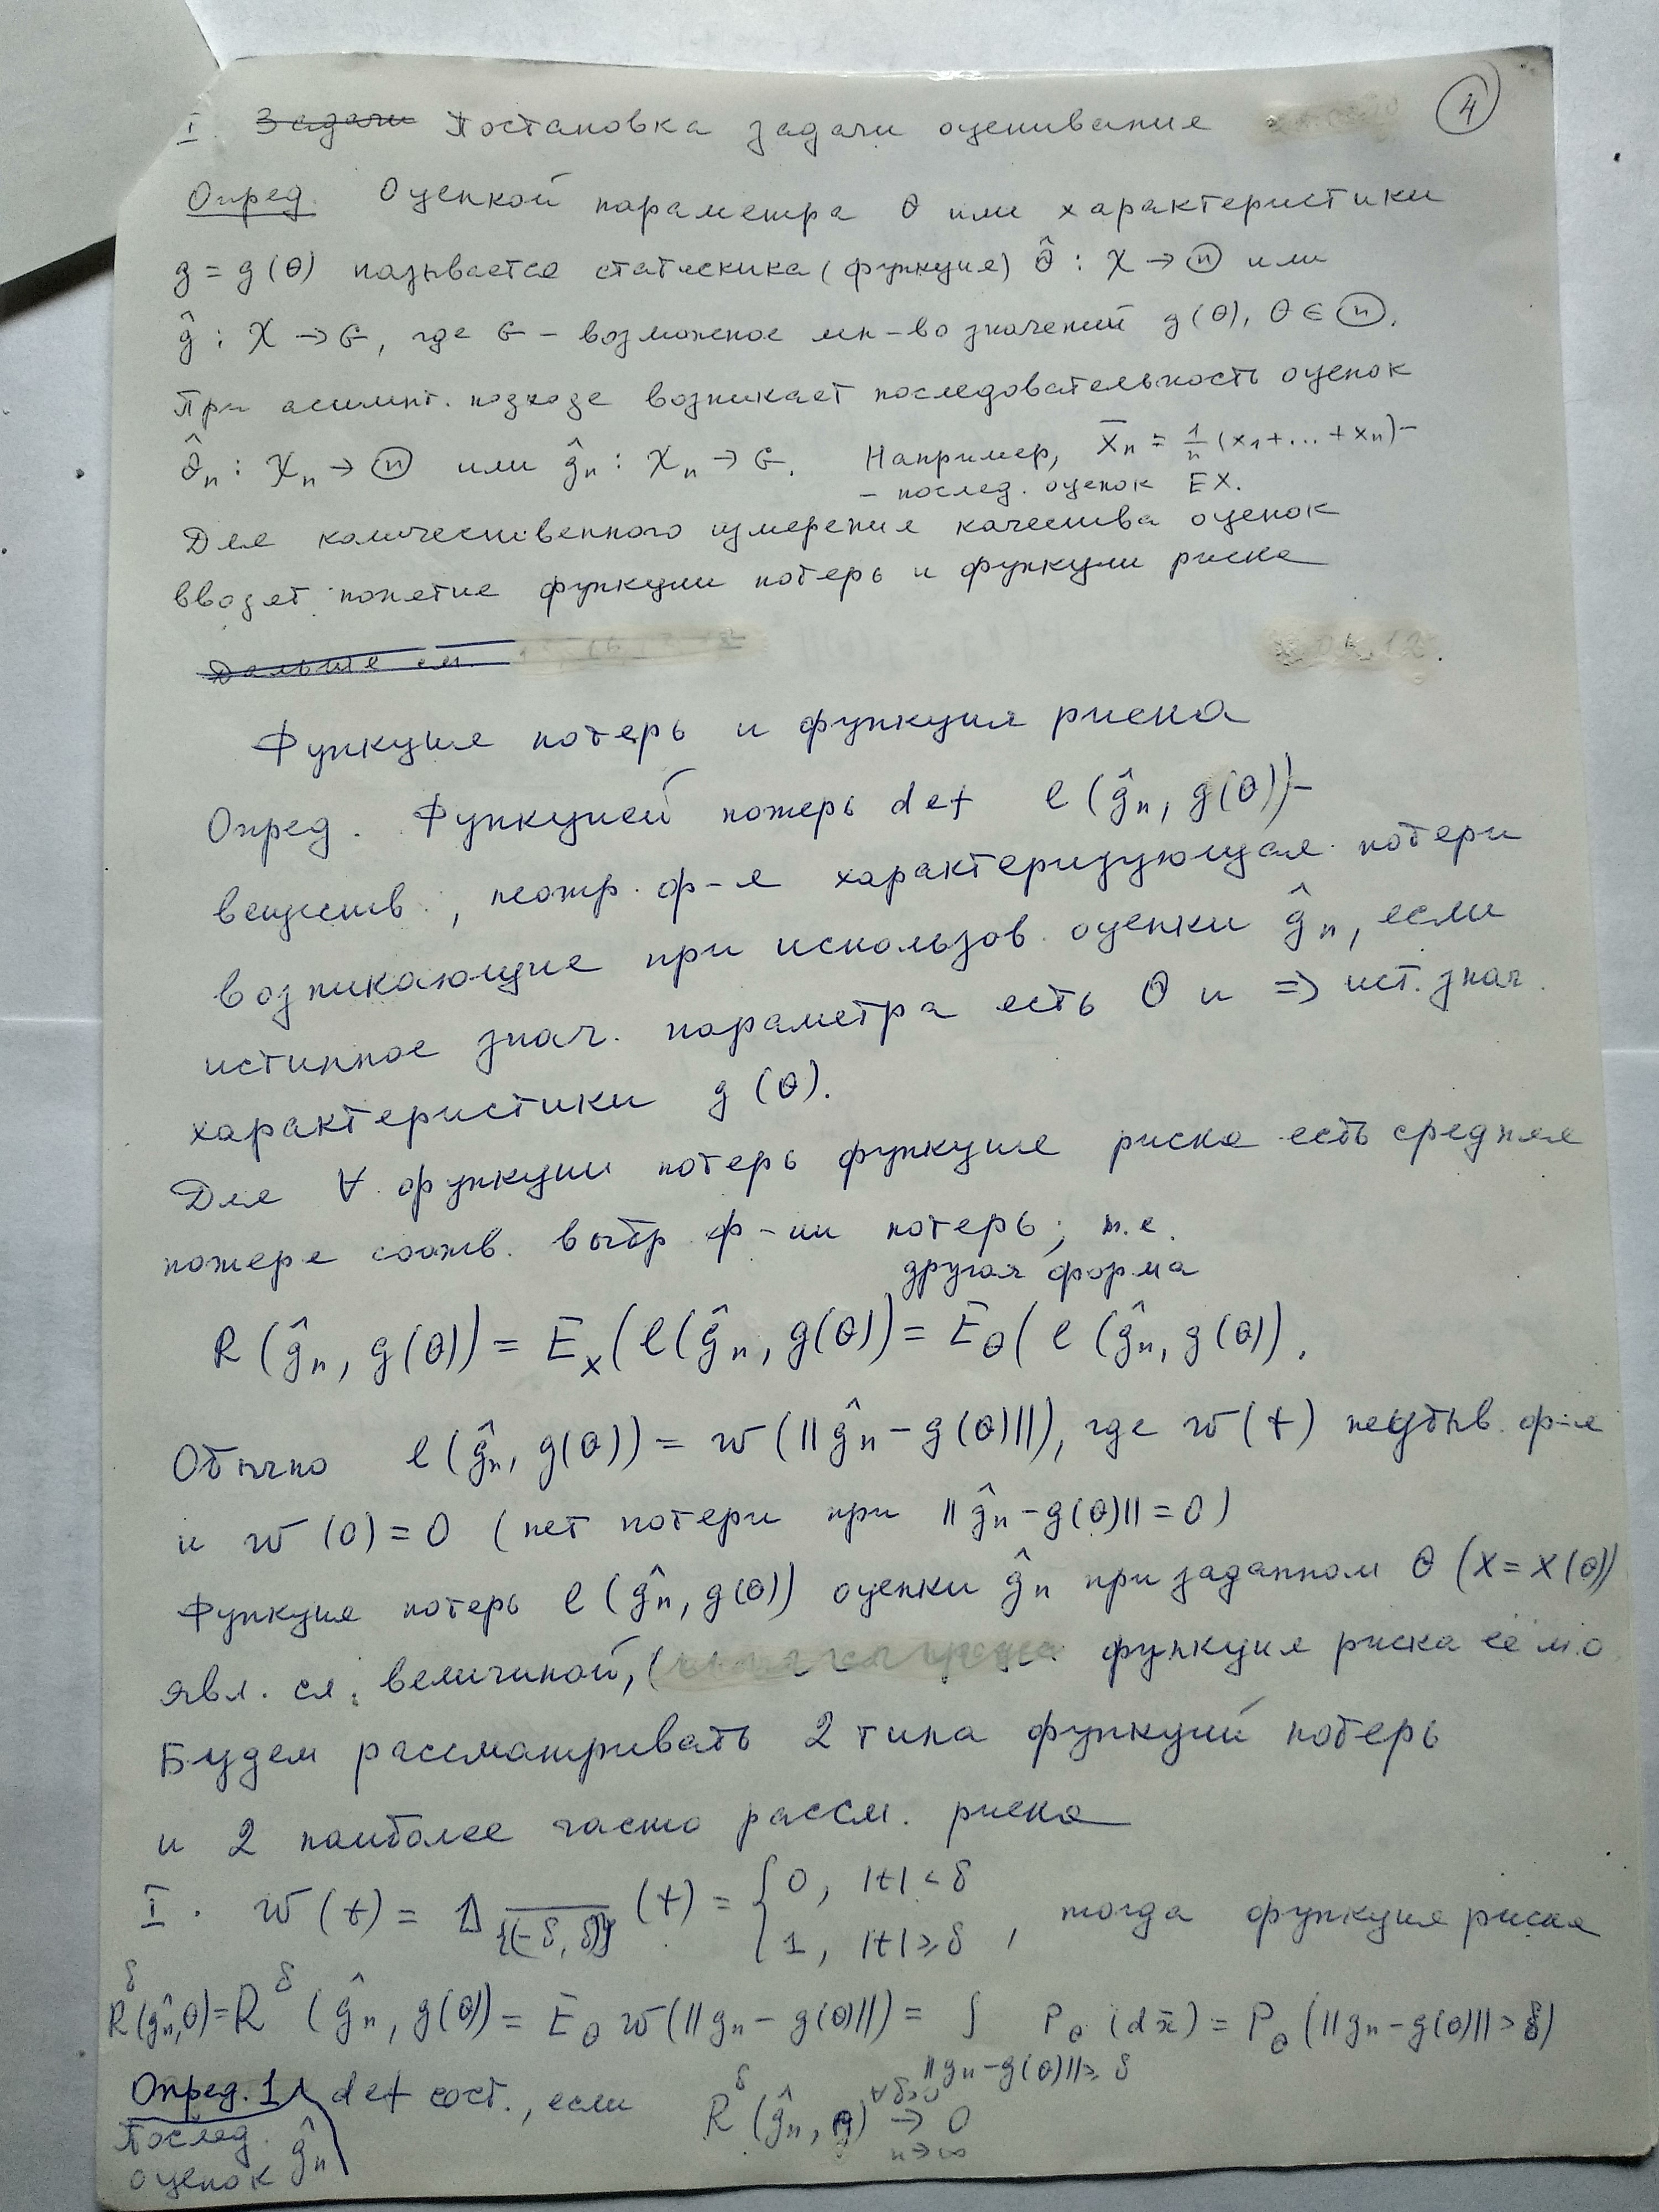 ④
I. ~~Задачи~~ Постановка задачи оценивания
Опред. Оценкой параметра θ или характеристики
g = g(θ) называется статистика (функция) θ̂ : X → Θ или
ĝ : X → G, где G – возможное мн-во значений g(θ), θ ∈ Θ.
При асимпт. подходе возникает последовательность оценок
θ̂ₙ : Xₙ → Θ или ĝₙ : Xₙ → G. Например, X̄ₙ = 1/n (x₁+...+xₙ) –
– послед. оценок EX.
Для количественного измерения качества оценок
вводят понятие функции потерь и функции риска
~~Дальше см.~~
Функция потерь и функция риска
Опред. Функцией потерь def l(ĝₙ, g(θ)) –
веществ., неотр. ф-я характеризующая потери
возникающие при использов. оценки ĝₙ, если
истинное знач. параметра есть θ и ⇒ ист. знач.
характеристики g(θ).
Для ∀ функции потерь функция риска есть средняя
потеря соотв. выбр ф-ии потерь, т.е.
другая форма
R(ĝₙ, g(θ)) = Eₓ(l(ĝₙ, g(θ)) = E_θ(l(ĝₙ, g(θ)).
Обычно l(ĝₙ, g(θ)) = w(||ĝₙ – g(θ)||), где w(t) неубыв. ф-я
и w(0) = 0 (нет потери при ||ĝₙ – g(θ)|| = 0)
Функция потерь l(ĝₙ, g(θ)) оценки ĝₙ при заданном θ (X = X(θ))
явл. сл. величиной, ( функция риска её м.о
Будем рассматривать 2 типа функций потерь
и 2 наиболее часто рассм. риска
I. w(t) = 1_{\overline{{(-δ, δ)}}}(t) = { 0, |t| < δ ; 1, |t| ≥ δ , тогда функция риска
R^δ(ĝₙ, θ) = R^δ(ĝₙ, g(θ)) = E_θ w(||gₙ – g(θ)||) = ∫_{||gₙ – g(θ)|| ≥ δ} P_θ(dx̄) = P_θ(||gₙ – g(θ)|| > δ)
Опред. 1 Послед. оценок ĝₙ def сост., если R^δ(ĝₙ, θ) → 0 ∀δ>0 n→∞